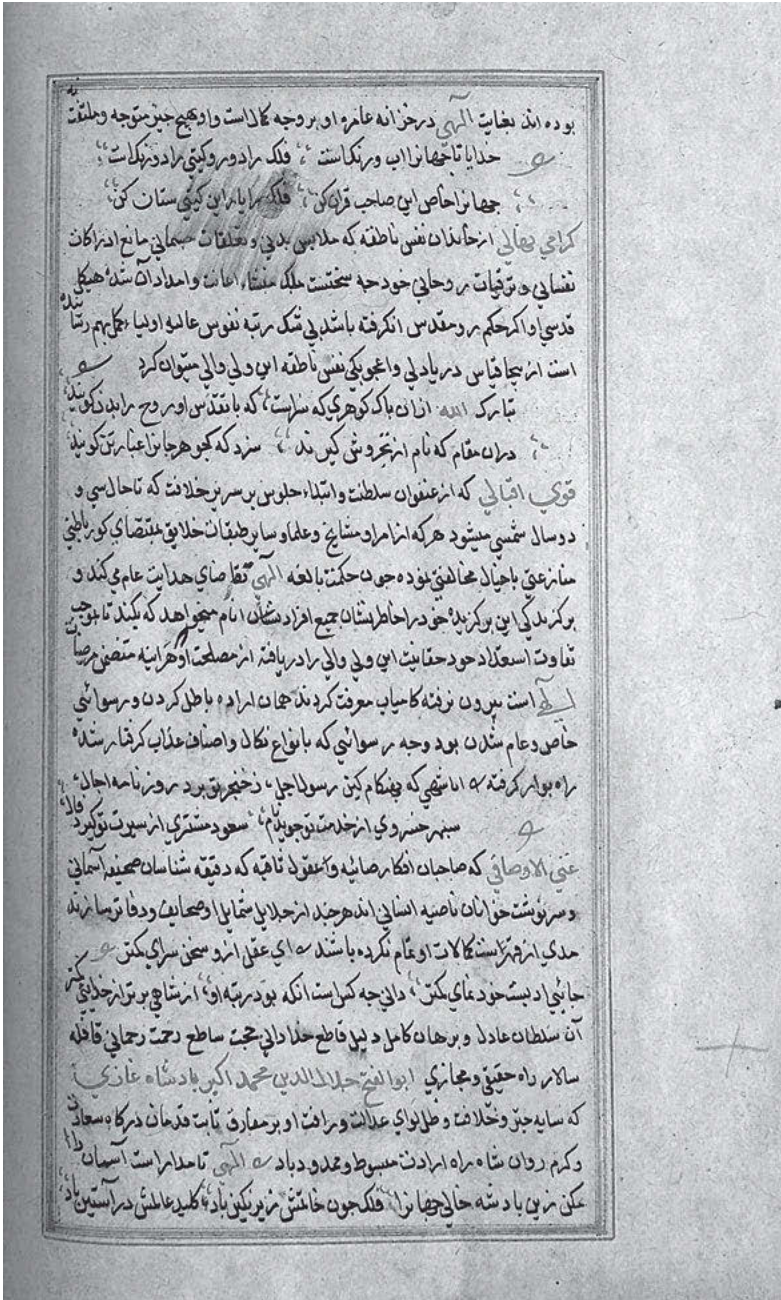 بوده اند بغایت الهی در خزانه عامره او بر وجه کمال است و او بهیچ چیز متوجه و ملتفت نه
خدایا تا جهانرا آب و رنگ است فلک را دور و گیتی را درنگ است
جهانرا خاص این صاحب قران کن فلک را یار این گیتی ستان کن
از خاندان نفس ناطقه که ملابس بدنی و تعلقات جسمانی مانع ادراکات
نفسانی و ترقیات روحانی خود چه سختست ملک منشاء اعانت و امداد آن شده هیکل
قدسی او اگر حکم روح مقدس گرفته باشد بی شک رتبه نفوس عالیه اولیاء کمل بهم رسانیده
است از پنجا قیاس دریا دلی و نفس ناطقه این ولی والی میتوان کرد
تبارک الله ازان پاک گوهری که سزاست که با تقدس او روح را بدن گویند
دران مقام که نام از تن کیرند سزد که گوهر جانرا غبار تن گویند
قوی اقبالی که از عنفوان سلطنت و ابتداء جلوس بر سریر خلافت که تا حال سی و
دو سال شمسی میشود هر که از امرا و مشایخ و علما و سایر طبقات خلایق بمقتضای کور باطنی
منازعتی یا خیال مخالفتی نموده چون حکمت بالغه الهی تقاضای هدایت عام می کند و
برگزیدگی این برگزیده خود را خاطر نشان جمیع افراد انام میخواهد که بکند تا بموجب
تفاوت استعداد خود حقانیت این ولی والی را دریافته از مصلحت او که هر آینه متضمن مرضیات
الهی است بیرون نرفته کامیاب معرفت گردند همان اراده باطل کردن و رسوائی
خاص و عام شدن بود و چه رسوائی که بانواع نکال و اصناف عذاب گرفتار شده
راه بوار گرفته ایا شهی که بهنگام کین رسول اجل ز خنجر تو برد روزنامه آجال
سپهر خسروی از خدمت تو جوید نام سعود مشتری از سیرت تو گیرد فال
غنی الاوصافی که صاحبان افکار صائبه و عقول ثاقبه که دقیقه شناسان صحیفه آسمانی
و سرنوشت خوانان ناصیه انسانی اند هر چند از جلایل شمایل او صحایف و دفاتر سازند
حدی از فهرست کمالات او تمام نکرده باشند ای عقل ازو سخن سرای کمتر
جائی ادبست خودنمای کمتر دانی چه کس است آنکه بود رتبه او از شاهی برتر از خدایی کمتر
آن سلطان عادل و برهان کامل دلیل قاطع خدادانی حجت ساطع رحمت رحمانی قافله
سالار راه حقیقی و مجازی ابو الفتح جلال الدین محمد اکبر پادشاه غازی
که سایه چتر خلافت و ظل لوای عدالت و رافت او بر مفارق ثابت قدمان درگاه سعادت
و گرم روان شاه راه ارادت مبسوط و ممدود باد الهی تا مدار است آسمان را
مکن زین پادشه خالی جهانرا فلک چون خاتمش زیر نگین باد کلید عالمش در آستین باد